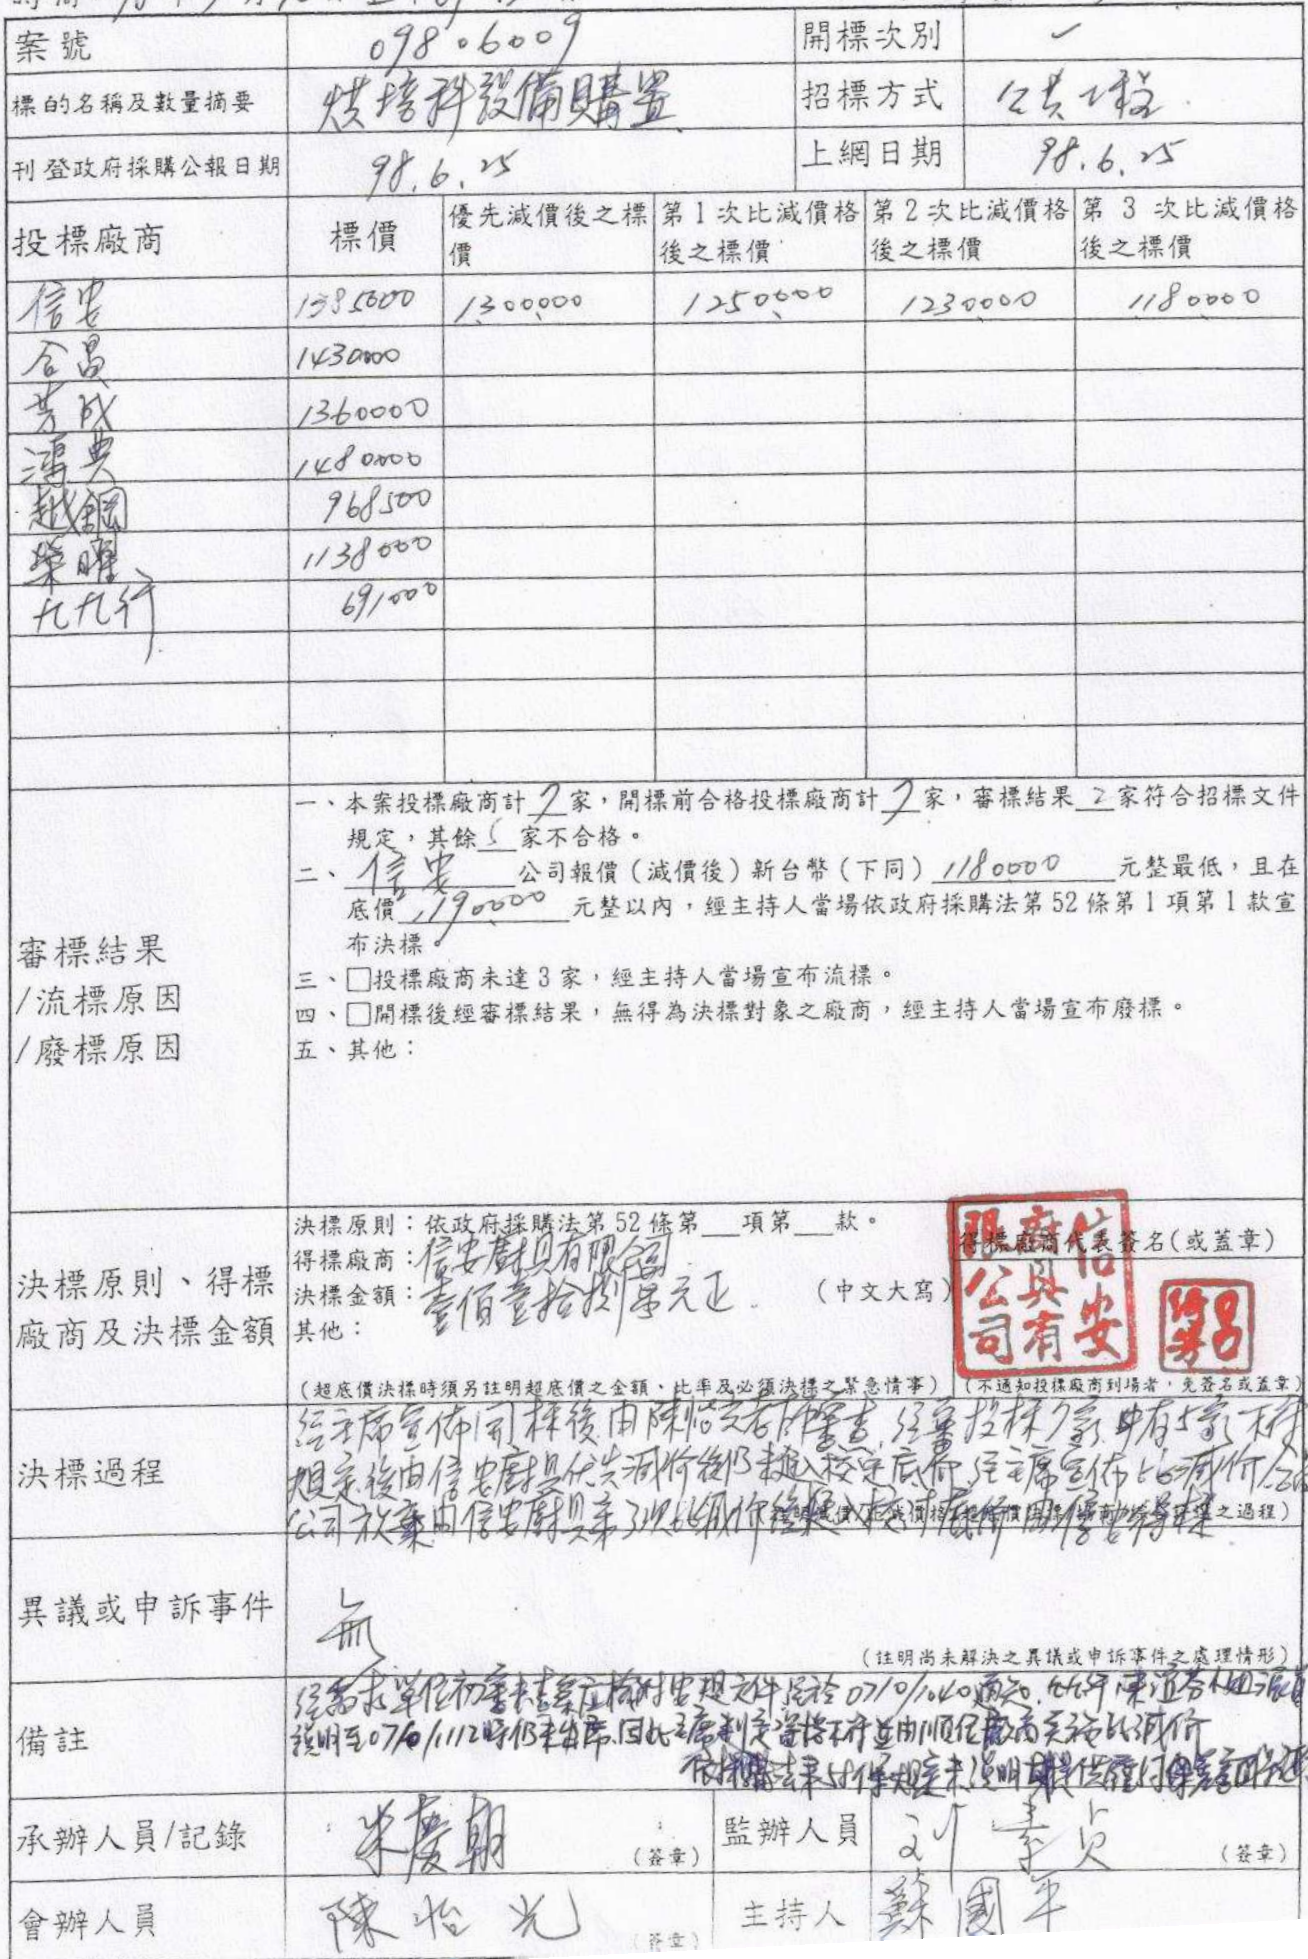 案號 09806009 開標次別
標的名稱及數量摘要 烘培科設備購置 招標方式
刊登政府採購公報日期 98.6.25 上網日期 98.6.25
投標廠商 標價 優先減價後之標價 第1次比減價格後之標價 第2次比減價格後之標價 第3次比減價格後之標價
信安 1385000 1300000 1250000 1230000 1180000
合昌 1430000
芳成 1360000
鴻典 1480000
越鋼 968500
榮曜 1138000
九九行 691000
審標結果
/流標原因
/廢標原因
一、本案投標廠商計7家，開標前合格投標廠商計7家，審標結果2家符合招標文件
規定，其餘5家不合格。
二、信安公司報價（減價後）新台幣（下同）1180000元整最低，且在
底價1190000元整以內，經主持人當場依政府採購法第52條第1項第1款宣
布決標。
三、□投標廠商未達3家，經主持人當場宣布流標。
四、□開標後經審標結果，無得為決標對象之廠商，經主持人當場宣布廢標。
五、其他：
決標原則、得標
廠商及決標金額
決標原則：依政府採購法第52條第__項第__款。
得標廠商：信安廚具有限公司
決標金額：壹佰壹拾捌萬元正（中文大寫）
其他：
（超底價決標時須另註明超底價之金額、比率及必須決標之緊急情事）
得標廠商代表簽名（或蓋章）
信安廚具有限公司
（不通知投標廠商到場者，免簽名或蓋章）
決標過程
經主席宣佈開標後由陳怡光老師審查，經審投標7家，中有5家不符
規定後由信安廚具優先減价後仍未進入核定底價，經主席宣佈比減价，合昌
公司放棄由信安廚具第3次比減价後進入
之過程）
異議或申訴事件 無
（註明尚未解決之異議或申訴事件之處理情形）
備註
經需求單位初審
承辦人員/記錄 朱慶朝（簽章） 監辦人員 刘素貞（簽章）
會辦人員 陳怡光（簽章） 主持人 蘇國平